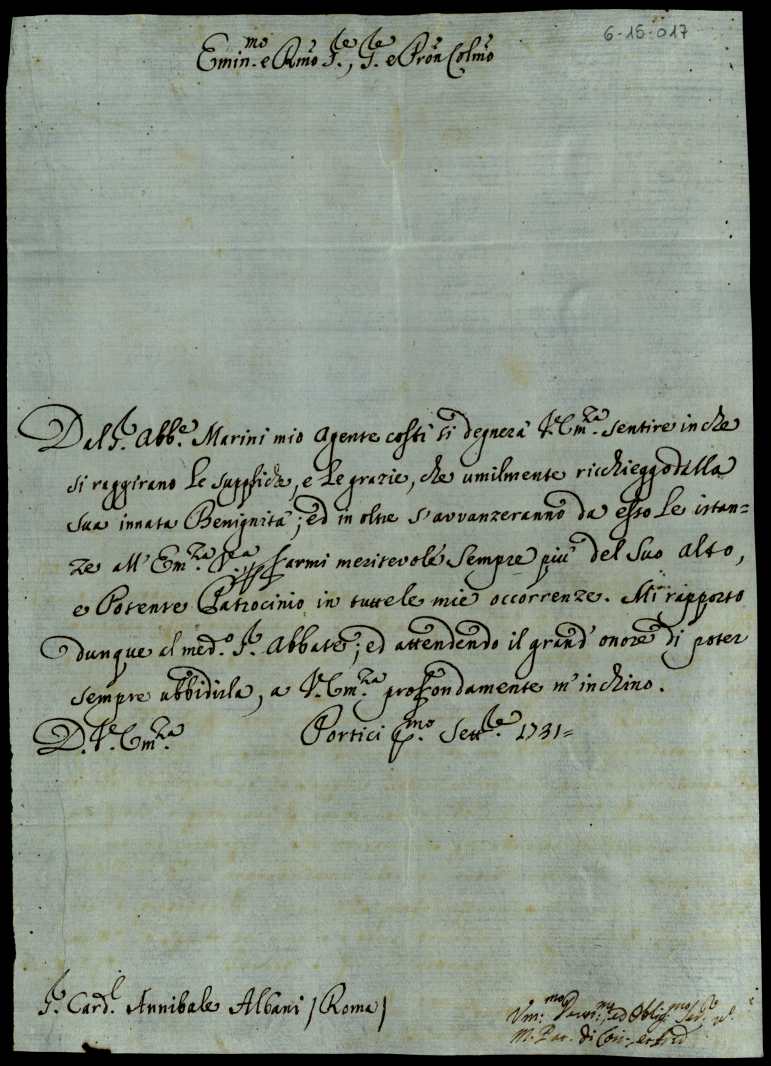 6-15-017
Emin.mo e Rmo S.re, S.re e Pron Colmo
Dal S.r Abb.e Marini mio Agente costì si degnerà V.Em.za sentire in che
si raggirano le suppliche, e le grazie, che umilmente richieggo dalla
sua innata Benignità; ed in oltre s'avvanzeranno da esso le istan=
ze all'Em.za V.ra farmi meritevole sempre più del suo alto,
e Potente Patrocinio in tutte le mie occorrenze. Mi rapporto
dunque al med.o S.r Abbate; ed attendendo il grand'onore di poter
sempre ubbidirla, a V.Em.za profondamente m'inchino.
D.V.Em.za Portici p.mo Sett.re 1731=
S.r Card.l Annibale Albani / Roma /
Um.mo Devot.mo ed Oblig.mo Ser.re